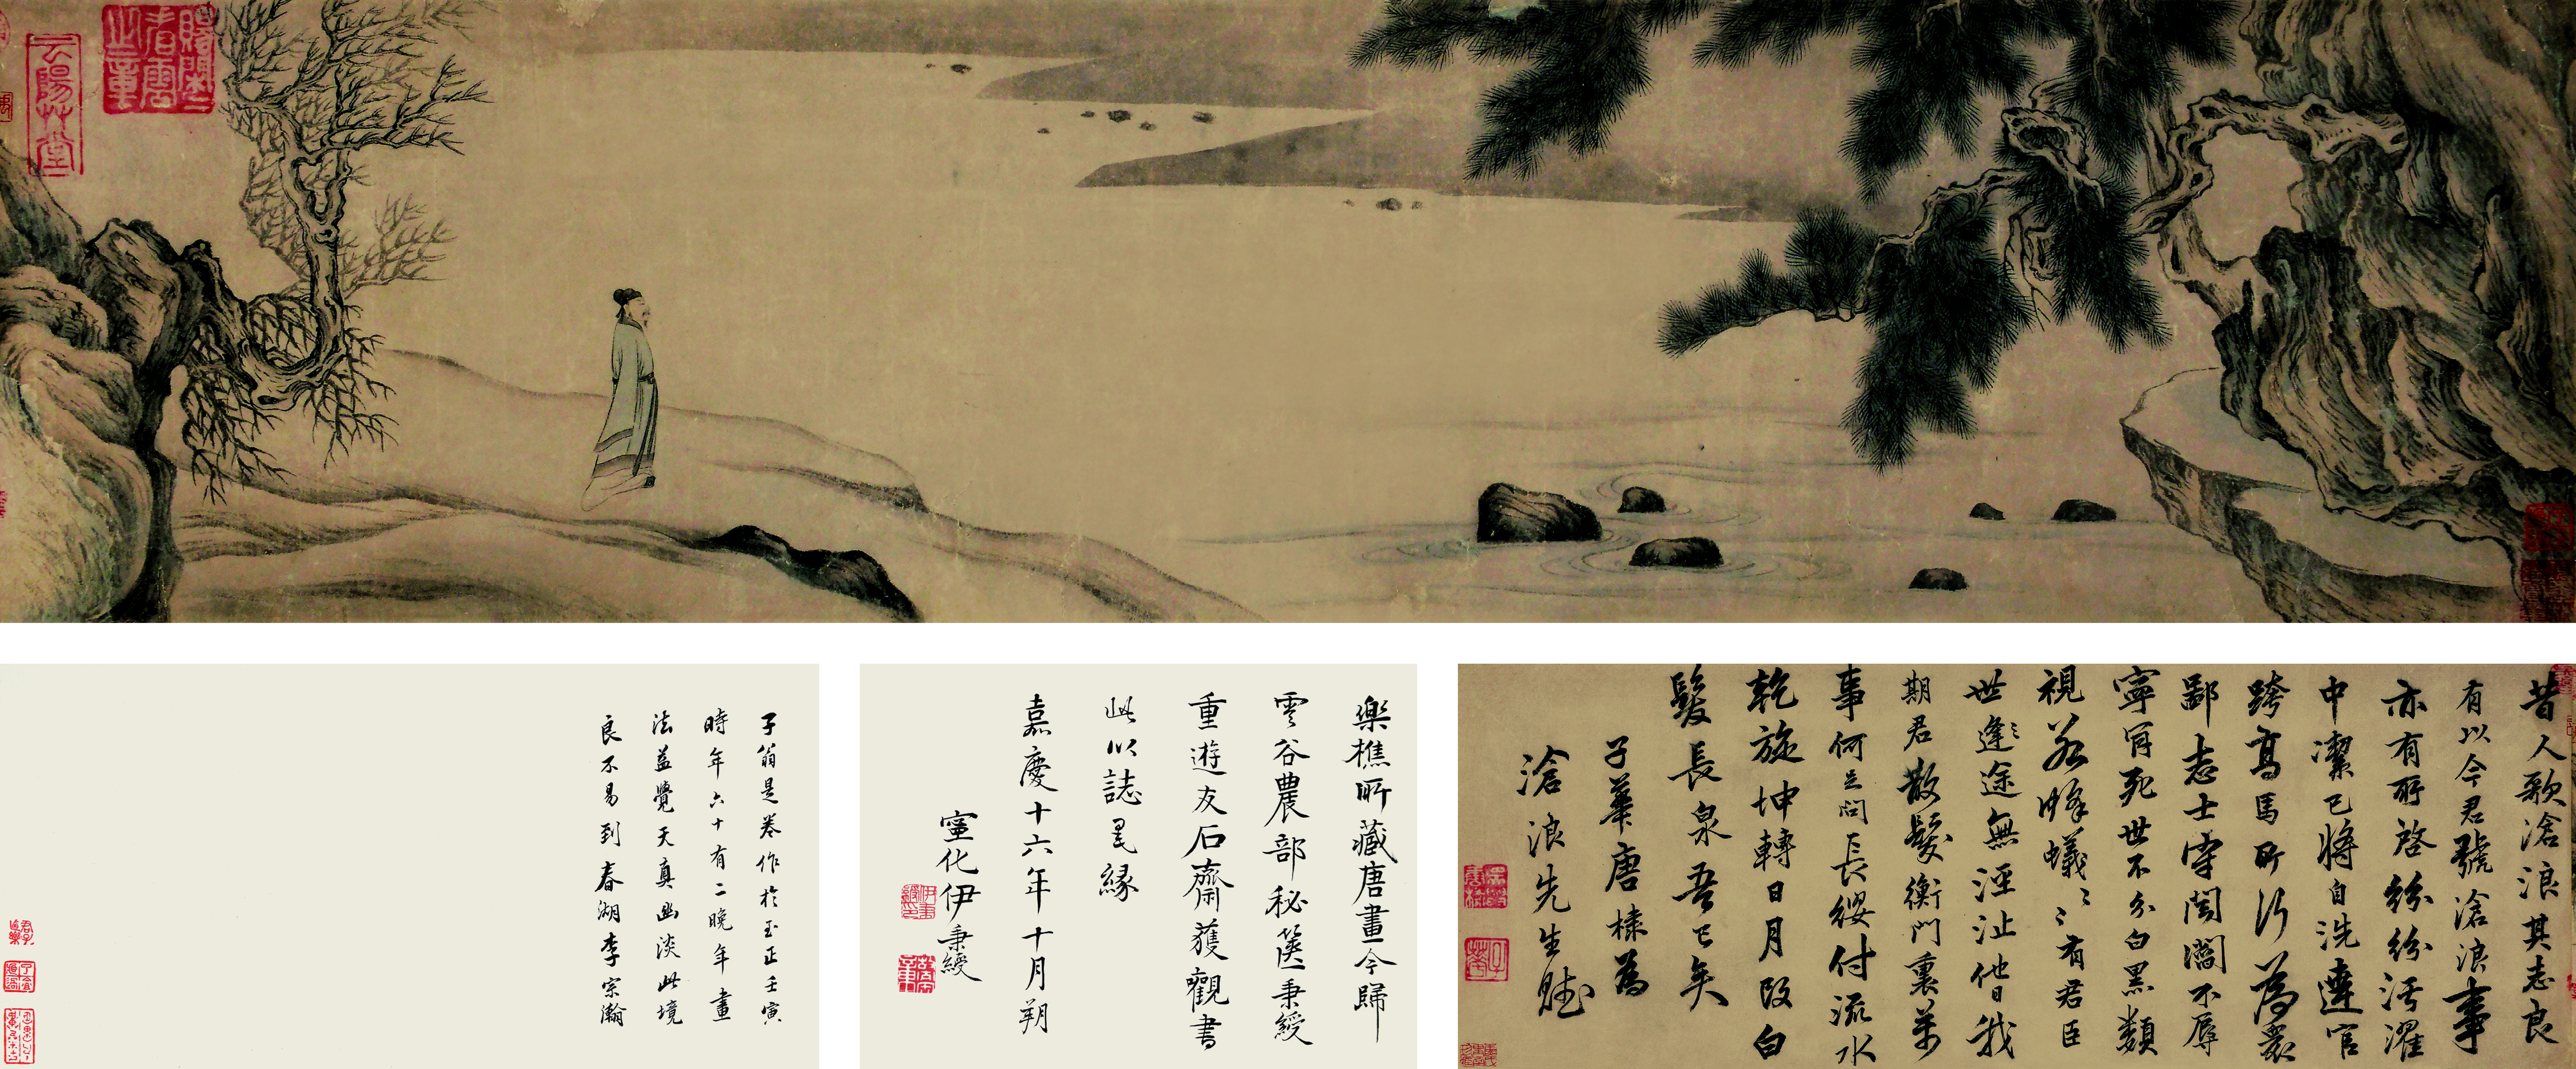 昔人歌滄浪其志良
有以今君號滄浪事
亦有所啓紛紛污濯
中潔已將自洗達官
跨高馬所行為衆
鄙志士守閭閻不辱
寧宵死世不分白黑類
視若蜂蟻蟻有君臣
世逢逢途無涇沚他日我
期君散髮衡門裏等
事何足問長纓付流水
乾旋坤轉日月改白
髮長泉吾已矣
子華唐棣為
滄浪先生賦
樂樵所藏唐畫今歸
雲谷農部秘篋秉綬
重遊友石齋獲觀書
此以誌墨緣
嘉慶十六年十月朔
寧化伊秉綬
子翁是卷作於至正壬寅
時年六十有二晚年畫
法益覺天真幽淡此境
良不易到春湖李宗瀚
賜閑
看雲
之章
云陽草堂